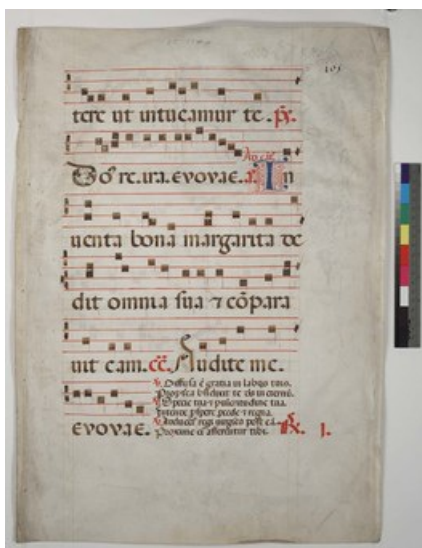 105
tere ut intueamur te. ps.
Do. re. ura. evovae. a. In
uenta bona margarita de
dit omnia sua ⁊ cōpara
uit eam. cc. Audite me.
℣. Diffusa ē gratia in labijs tuis.
Propterea benedixit te
℣. Specie tua ⁊ pulcritudine tua.
Intende prospere procede ⁊ regna.
℣. Adducentur regi virgines post eā.
Proxime ei afferentur tibi.
evovae. ℟. 1.